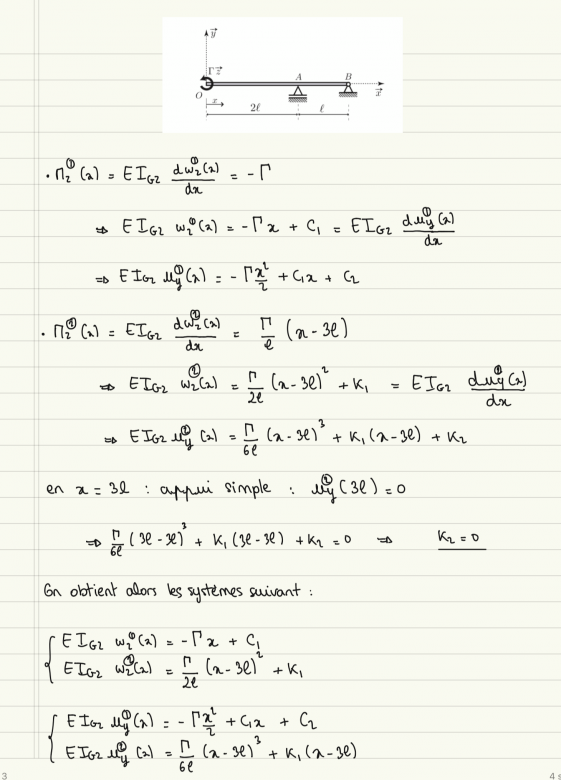 y⃗
Γz⃗
A
B
O
x
x⃗
2ℓ
ℓ
• M_z^①(x) = E I_{Gz} dω_z^①(x)/dx = -Γ
⇒ E I_{Gz} ω_z^①(x) = -Γx + C₁ = E I_{Gz} du_y^①(x)/dx
⇒ E I_{Gz} u_y^①(x) = -Γ x²/2 + C₁x + C₂
• M_z^②(x) = E I_{Gz} dω_z^②(x)/dx = Γ/ℓ (x-3ℓ)
⇒ E I_{Gz} ω_z^②(x) = Γ/2ℓ (x-3ℓ)² + K₁ = E I_{Gz} du_y^②(x)/dx
⇒ E I_{Gz} u_y^②(x) = Γ/6ℓ (x-3ℓ)³ + K₁(x-3ℓ) + K₂
en x = 3ℓ : appui simple : u_y^②(3ℓ) = 0
⇒ Γ/6ℓ (3ℓ-3ℓ)³ + K₁(3ℓ-3ℓ) + K₂ = 0 ⇒ K₂ = 0
On obtient alors les systèmes suivant :
E I_{Gz} ω_z^①(x) = -Γx + C₁
E I_{Gz} ω_z^②(x) = Γ/2ℓ (x-3ℓ)² + K₁
E I_{Gz} u_y^①(x) = -Γ x²/2 + C₁x + C₂
E I_{Gz} u_y^②(x) = Γ/6ℓ (x-3ℓ)³ + K₁(x-3ℓ)
3
4 s